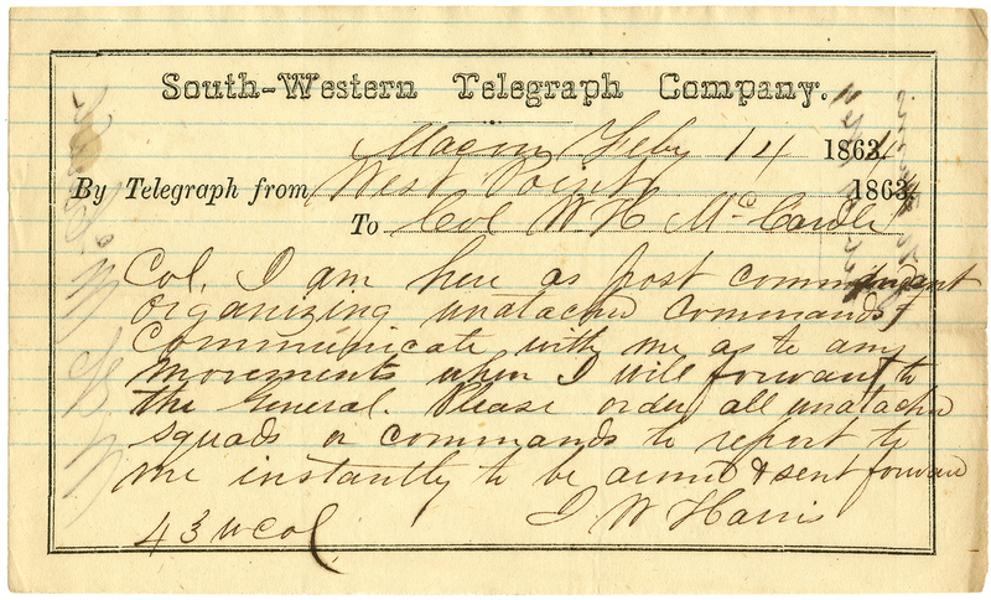 South-Western Telegraph Company.
Macon Feby 14 1863
By Telegraph from West Point 1863
To Col W H McCardle
Col, I am here as post commandant
organizing unatachd commands
Communicate with me as to any
movements when I will forward to
the General. Please order all unatachd
squads or commands to report to
me instantly to be armd & sent forward
43 w col J W Harris